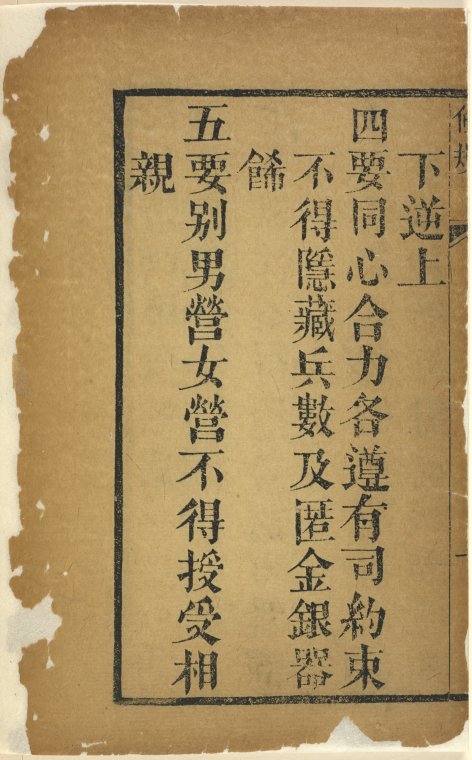 下逆上
四要同心合力各遵有司約束
不得隱藏兵數及匿金銀器
餙
五要别男營女營不得授受相
親